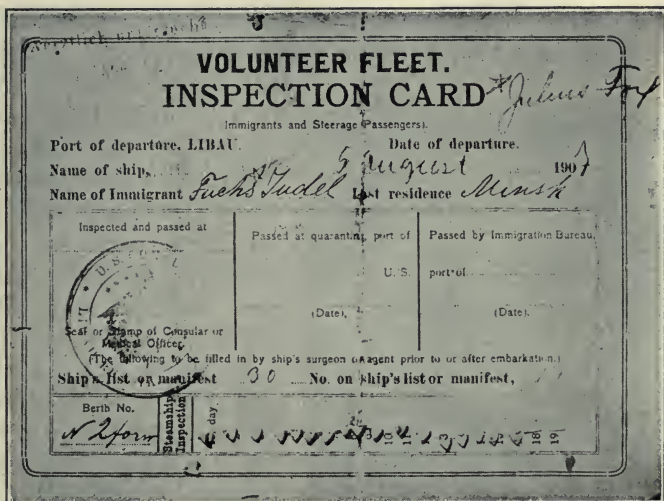 VOLUNTEER FLEET.
INSPECTION CARD
Julius Fox
Immigrants and Steerage Passengers).
Port of departure, LIBAU. Date of departure.
Name of ship, 5 August 1907
Name of Immigrant Fuchs Judel Last residence Minsk
Inspected and passed at
Passed at quarantine, port of
U. S.
(Date),
Passed by Immigration Bureau,
port of
(Date).
U. S.
Seal or Stamp of Consular or
Medical Officer
(The following to be filled in by ship's surgeon or agent prior to or after embarkation.)
Ship's list or manifest 30 No. on ship's list or manifest,
Berth No.
Steamship
Inspection
day
18
19